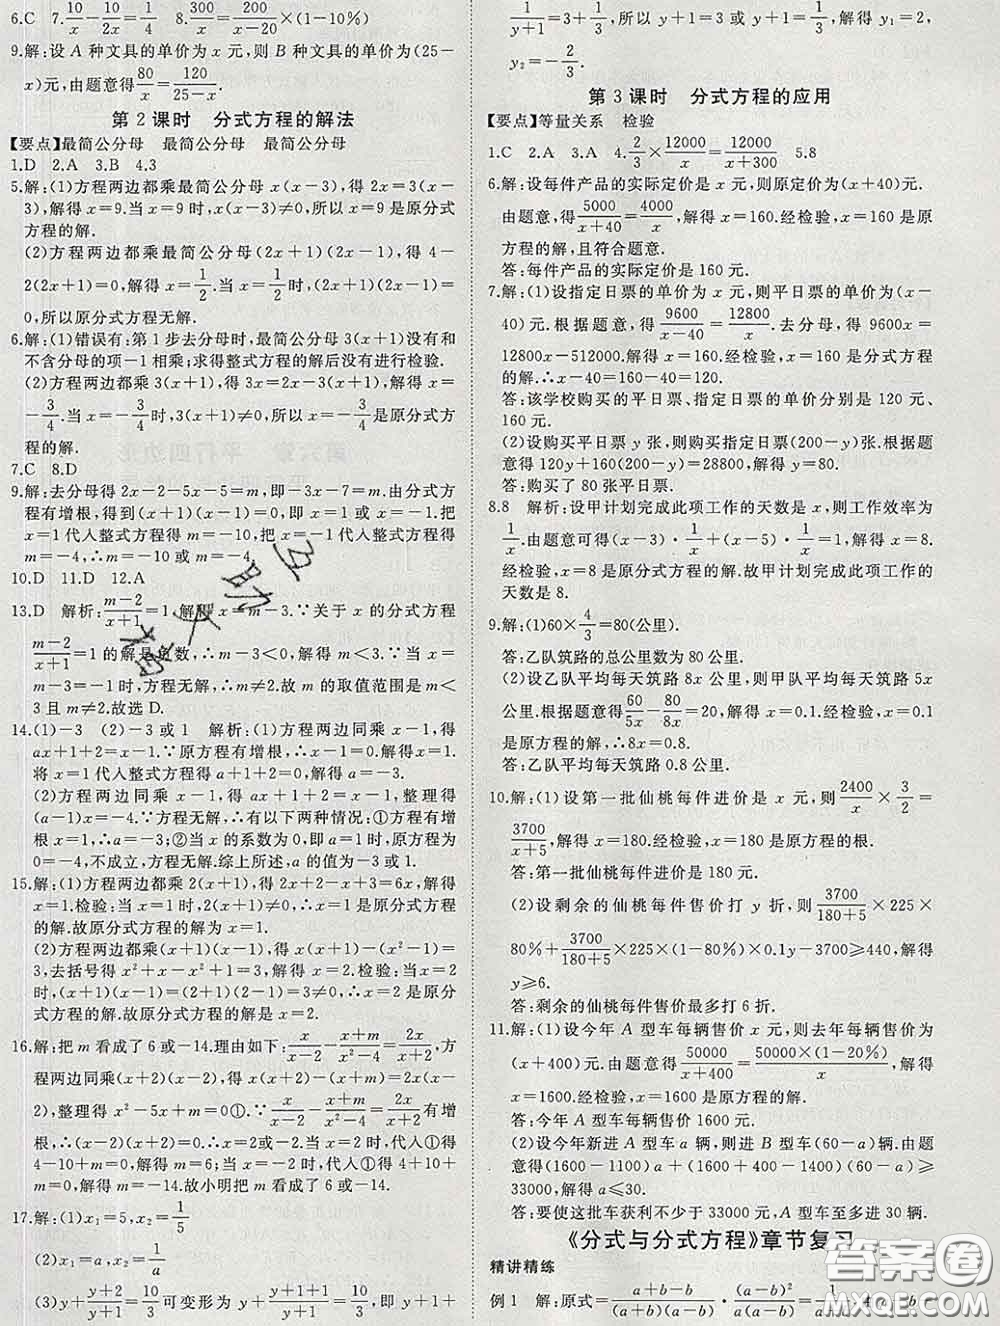 6.C　7.10/x－10/2x＝1/4　8.300/x＝300/(x－20)×(1－10%)
9.解:设 A 种文具的单价为 x 元,则 B 种文具的单价为(25－
x)元,由题意得80/x＝120/(25－x).
第 2 课时　分式方程的解法
【要点】最简公分母　最简公分母　最简公分母
1.D　2.A　3.B　4.3
5.解:(1)方程两边都乘最简公分母 x(x－3),得 2x＝3(x－
3),解得 x＝9.当 x＝9 时,x(x－3)≠0,所以 x＝9 是原分式
方程的解.
(2)方程两边都乘最简公分母(2x＋1)(2x－1),得 4－
2(2x＋1)＝0,解得 x＝1/2.当 x＝1/2时,(2x＋1)(2x－1)＝
0,所以原分式方程无解.
6.解:(1)错误有:第 1 步去分母时,最简公分母 3(x＋1)没有和
不含分母的项－1 相乘;求得整式方程的解后没有进行检验.
(2)方程两边都乘 3(x＋1),得 3x＝2x－3(x＋1),解得 x＝
－3/4.当 x＝－3/4时,3(x＋1)≠0,所以 x＝－3/4是原分式方
程的解.
7.C　8.D
9.解:去分母得 2x－2－5x－5＝m,即－3x－7＝m.由分式方
程有增根,得到(x＋1)(x－1)＝0,即 x＝1 或 x＝－1.把
x＝1 代入整式方程得 m＝－10,把 x＝－1 代入整式方程得
m＝－4,∴m＝－10 或 m＝－4.
10.D　11.D　12.A
13.D　解析:(m－2)/(x＋1)＝1,解得 x＝m－3.∵关于 x 的分式方程
(m－2)/(x＋1)＝1 的解是负数,∴m－3＜0,解得 m＜3.当 x＝
m－3＝－1 时,方程无解,∴m≠2.故 m 的取值范围是 m＜
3 且 m≠2.故选 D.
14.(1)－3　(2)－3 或 1　解析:(1)方程两边同乘 x－1,得
ax＋1＋2＝x－1.∵原方程有增根,∴x－1＝0.解得 x＝1.
将 x＝1 代入整式方程得 a＋1＋2＝0,解得 a＝－3.
(2)方程两边同乘 x－1,得 ax＋1＋2＝x－1,整理得
(a－1)x＝－4.∵方程无解,∴有以下两种情况:①方程有增
根 x＝1,则 a＝－3;②当 x 的系数为 0,即 a＝1 时,原方程为
0＝－4,不成立,方程无解.综上所述,a 的值为－3或 1.
15.解:(1)方程两边都乘 2(x＋1),得 2x＋2－x＋3＝6x,解得
x＝1.检验:当 x＝1 时,2(x＋1)≠0,∴x＝1 是原分式方程
的解.故原分式方程的解为 x＝1.
(2)方程两边都乘(x＋1)(x－1),得 x(x＋1)－(x²－1)＝
3,去括号得 x²＋x－x²＋1＝3,解得 x＝2.检验:当 x＝2
时,(x＋1)(x－1)＝(2＋1)(2－1)＝3≠0,∴x＝2 是原分
式方程的解.故原分式方程的解是 x＝2.
16.解:把 m 看成了 6 或－14.理由如下:x/(x－2)－(x＋m)/(x²－4)＝2x/(x＋2),方
程两边同乘(x＋2)(x－2),得 x(x＋2)－(x＋m)＝2x(x－
2),整理得 x²－5x＋m＝0①.∵x/(x－2)－(x＋m)/(x²－4)＝2x/(x＋2)有增
根,∴(x－2)(x＋2)＝0.∴x＝2或－2.当 x＝2 时,代入①得
4－10＋m＝0,解得 m＝6;当 x＝－2 时,代入①得 4＋10＋
m＝0,解得 m＝－14.故小明把 m 看成了 6 或－14.
17.解:(1)x₁＝5,x₂＝1/5
(2)x₁＝a,x₂＝1/a
(3)y＋(y＋2)/(y＋1)＝10/3可变形为 y＋(y＋1＋1)/(y＋1)＝10/3,即 y＋1＋
1/(y＋1)＝3＋1/3,所以 y＋1＝3 或 y＋1＝1/3,解得 y₁＝2,
y₂＝－2/3.
第 3 课时　分式方程的应用
【要点】等量关系　检验
1.C　2.A　3.A　4.2/3×12000/x＝12000/(x＋300)　5.8
6.解:设每件产品的实际定价是 x 元,则原定价为(x＋40)元.
由题意,得5000/(x＋40)＝4000/x,解得 x＝160.经检验,x＝160 是原
方程的解,且符合题意.
答:每件产品的实际定价是 160 元.
7.解:(1)设指定日票的单价为 x 元,则平日票的单价为(x－
40)元.根据题意,得9600/(x－40)＝12800/x.去分母,得 9600x＝
12800x－512000.解得 x＝160.经检验,x＝160 是分式方程
的解.∴x－40＝160－40＝120.
答:该学校购买的平日票、指定日票的单价分别是 120 元、
160 元.
(2)设购买平日票 y 张,则购买指定日票(200－y)张.根据
题意,得 120y＋160(200－y)＝28800,解得 y＝80.
答:购买了 80 张平日票.
8.8　解析:设甲计划完成此项工作的天数是 x,则工作效率为
1/x.由题意可得(x－3)·1/x＋(x－5)·1/x＝1,解得 x＝8.
经检验,x＝8 是原分式方程的解.故甲计划完成此项工作的
天数是 8.
9.解:(1)60×4/3＝80(公里).
答:乙队筑路的总公里数为 80 公里.
(2)设乙队平均每天筑路 8x 公里,则甲队平均每天筑路 5x
公里.根据题意,得60/5x－80/8x＝20,解得 x＝0.1.经检验,x＝0.1
是原分式方程的解,故 8x＝0.8.
答:乙队平均每天筑路 0.8 公里.
10.解:(1)设第一批仙桃每件进价是 x 元,则2400/x×3/2＝
3700/(x＋5),解得 x＝180.经检验,x＝180 是原方程的根.
答:第一批仙桃每件进价是 180 元.
(2)设剩余的仙桃每件售价打 y 折,则3700/(180＋5)×225×
80%＋3700/(180＋5)×225×(1－80%)×0.1y－3700≥440,解得
y≥6.
答:剩余的仙桃每件售价最多打 6 折.
11.解:(1)设今年 A 型车每辆售价 x 元,则去年每辆售价为
(x＋400)元.由题意得50000/(x＋400)＝50000×(1－20%)/x,解得
x＝1600.经检验,x＝1600 是原方程的根.
答:今年 A 型车每辆售价 1600 元.
(2)设今年新进 A 型车 a 辆,则进 B 型车(60－a)辆.由题
意得(1600－1100)a＋(1600＋400－1400)(60－a)≥
33000,解得 a≤30.
答:要使这批车获利不少于 33000 元,A 型车至多进 30 辆.
《分式与分式方程》章节复习
精讲精练
例 1　解:原式＝(a＋b－a＋b)/((a＋b)(a－b))·(a－b)²/a(a－b)＝
答案圈
MXQE.COM
作业帮